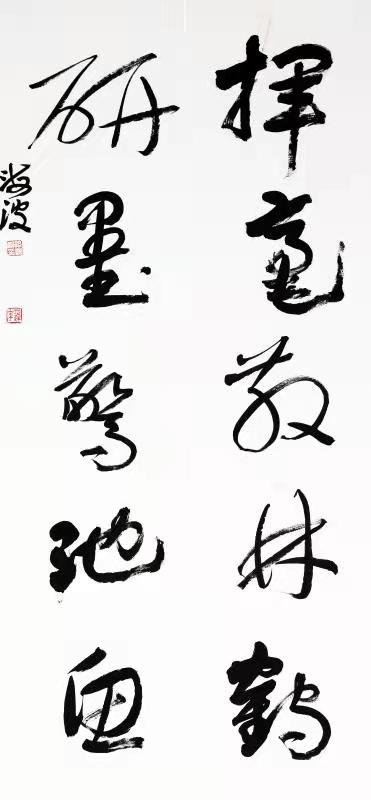 揮毫散林鶴
研墨驚池魚
海波